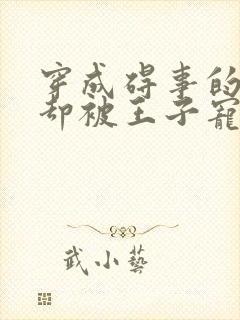 穿成碍事的
却被王子寵
武小藝